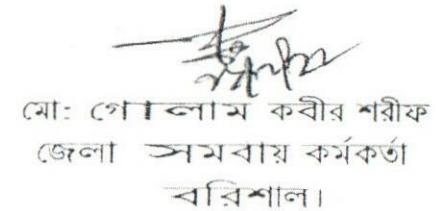 মো: গোলাম কবীর শরীফ
জেলা সমবায় কর্মকর্তা
বরিশাল।